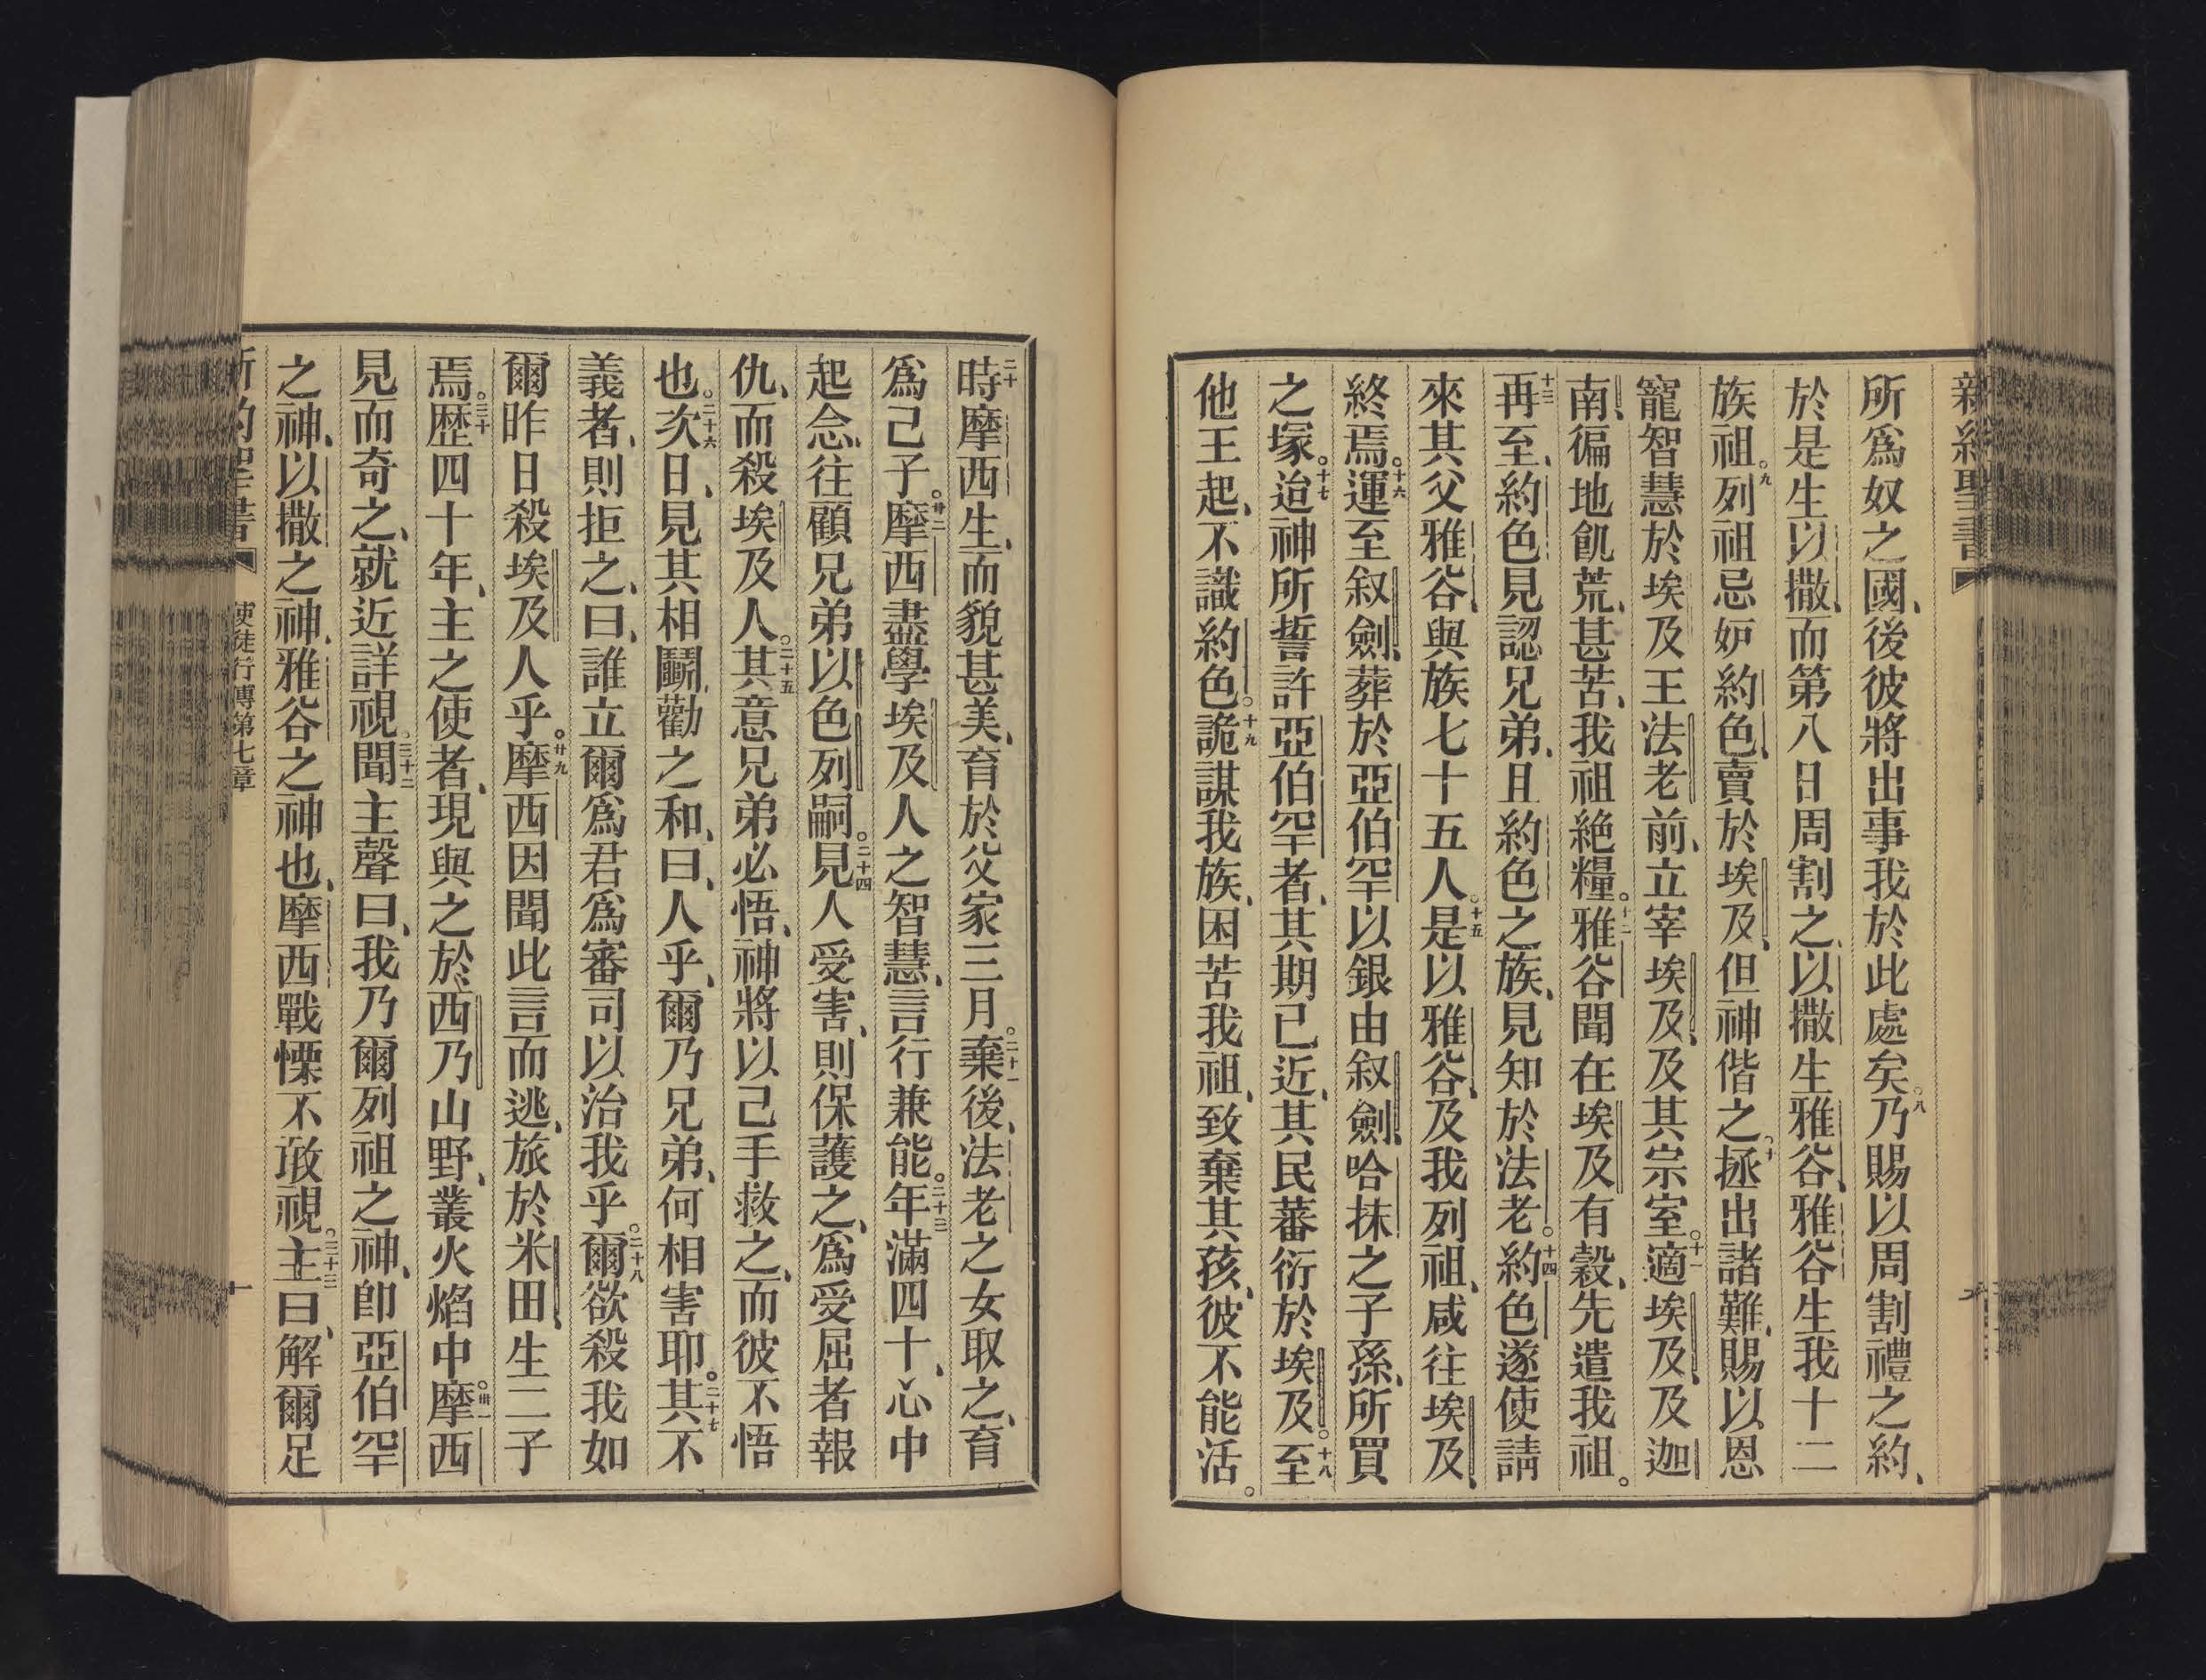 新約聖書
所爲奴之國、後彼將出事我於此處矣。八乃賜以周割禮之約、
於是生以撒、而第八日周割之、以撒生雅谷、雅谷生我十二
族祖。九列祖忌妒約色、賣於埃及、但神偕之、十拯出諸難、賜以恩
寵智慧於埃及王法老前、立宰埃及、及其宗室。十一適埃及、及迦
南、徧地飢荒、甚苦、我祖絕糧。十二雅谷聞在埃及有穀、先遣我祖。
十三再至、約色見認兄弟、且約色之族、見知於法老。十四約色遂使請
來其父雅谷、與族七十五人。十五是以雅谷、及我列祖、咸往埃及、
終焉。十六運至叙劍、葬於亞伯罕以銀由叙劍、哈抹之子孫、所買
之塚。十七迨神所誓許亞伯罕者、其期已近、其民蕃衍於埃及。十八至
他王起、不識約色。十九詭謀我族、困苦我祖、致棄其孩、彼不能活。
二十時摩西生、而貌甚美、育於父家三月。二十一棄後、法老之女取之、育
爲己子。廿二摩西盡學埃及人之智慧、言行兼能。二十三年滿四十、心中
起念、往顧兄弟以色列嗣。二十四見人受害、則保護之、爲受屈者報
仇、而殺埃及人。二十五其意兄弟必悟、神將以己手救之、而彼不悟
也。二十六次日、見其相鬬、勸之和、曰、人乎、爾乃兄弟、何相害耶。二十七其不
義者、則拒之、曰、誰立爾爲君爲審司以治我乎。二十八爾欲殺我如
爾昨日殺埃及人乎。廿九摩西因聞此言而逃、旅於米田、生二子
焉。三十歷四十年、主之使者、現與之於西乃山野、叢火焰中。卅一摩西
見而奇之、就近詳視。三十二聞主聲曰、我乃爾列祖之神、卽亞伯罕
之神、以撒之神、雅谷之神也、摩西戰慄不敢視。三十三主曰、解爾足
新約聖書 使徒行傳第七章 十